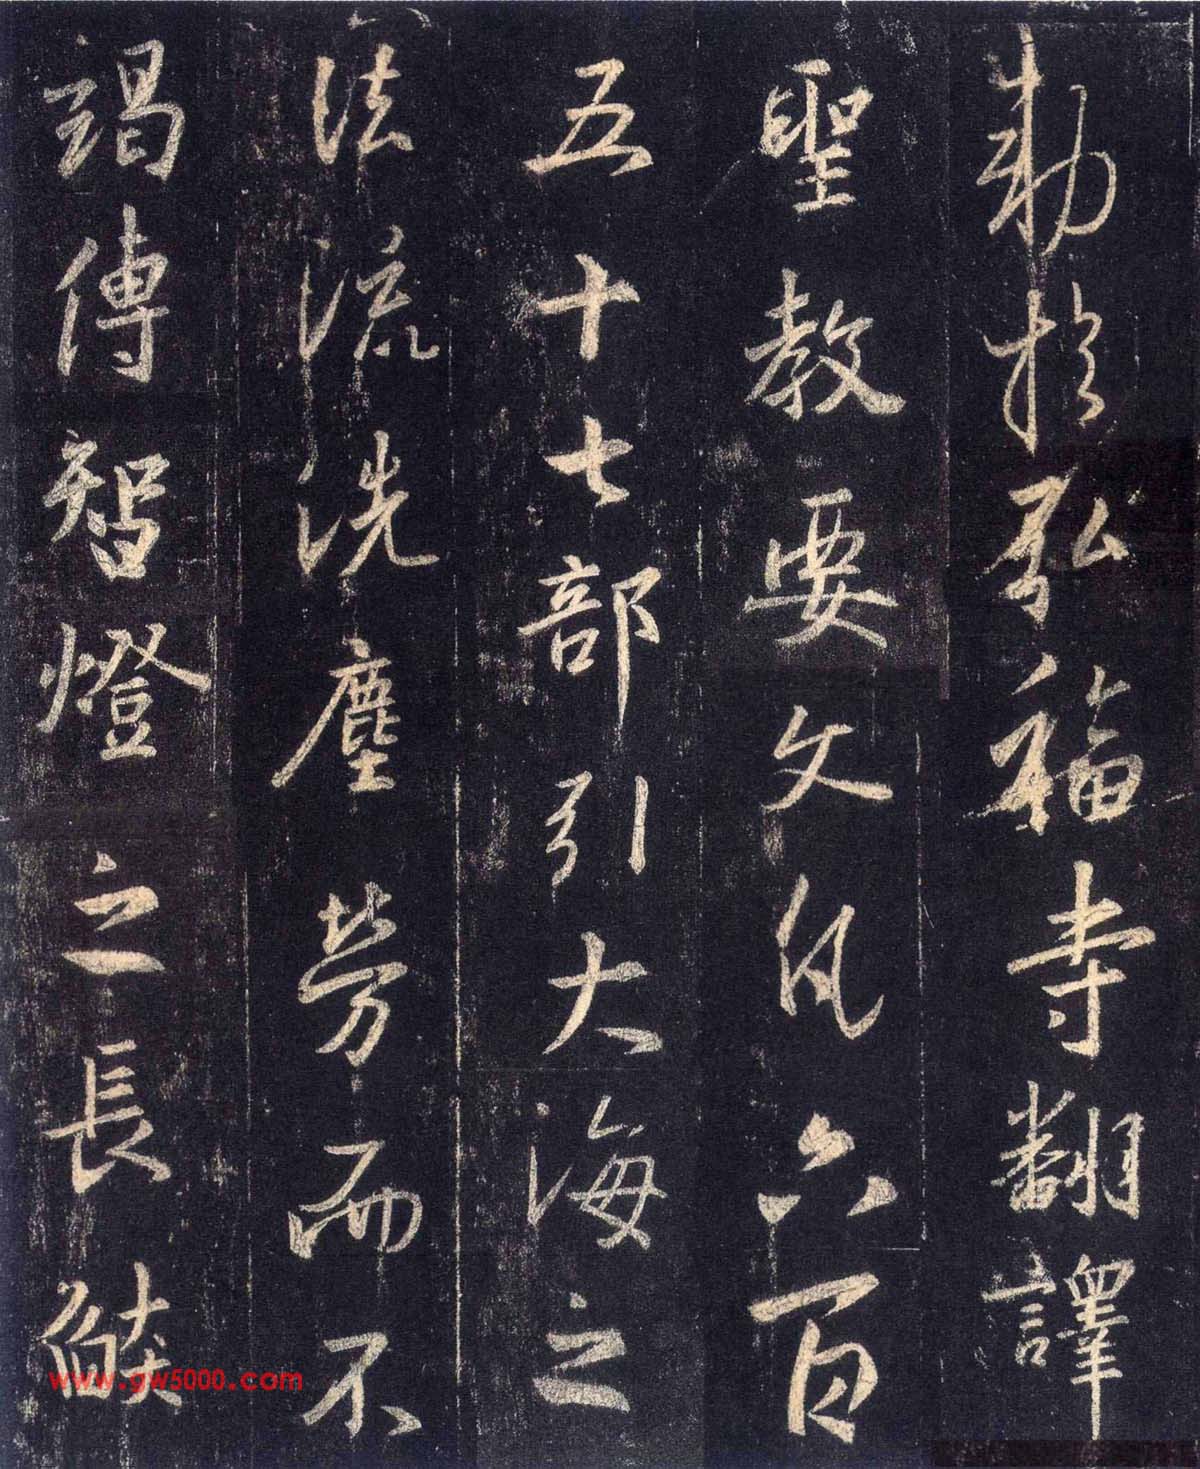 勅於弘福寺翻譯
聖教要文凡六百
五十七部引大海之
法流洗塵勞而不
竭傳智燈之長焰
www.gw5000.com